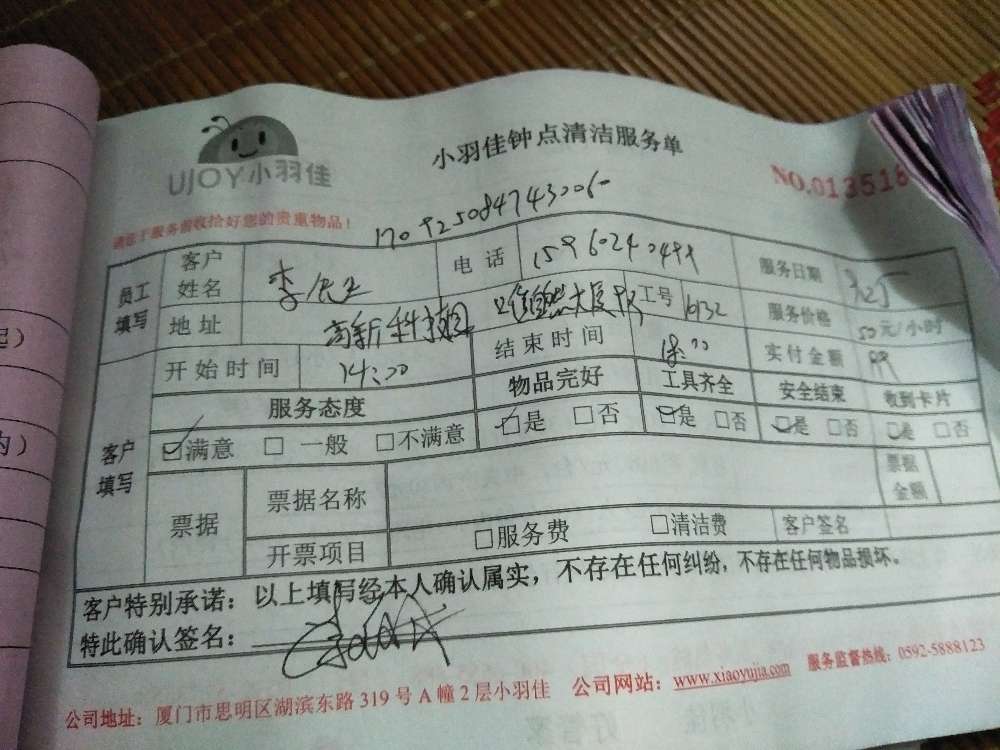 UJOY小羽佳
小羽佳钟点清洁服务单
NO.013518
请您于服务前收拾好您的贵重物品!
员工填写
客户姓名 李先生 电话 服务日期
地址 高新科技园 工号 服务价格 50元/小时
开始时间 14:00 结束时间 18:00 实付金额
客户填写
服务态度 物品完好 工具齐全 安全结束 收到卡片
☑满意 □一般 □不满意 ☑是 □否 ☑是 □否 ☑是 □否 ☑是 □否
票据 票据名称 票据金额
开票项目 □服务费 □清洁费 客户签名
客户特别承诺:以上填写经本人确认属实,不存在任何纠纷,不存在任何物品损坏。
特此确认签名:
公司地址:厦门市思明区湖滨东路319号A幢2层小羽佳 公司网站:www.xiaoyujia.com 服务监督热线:0592-5888123